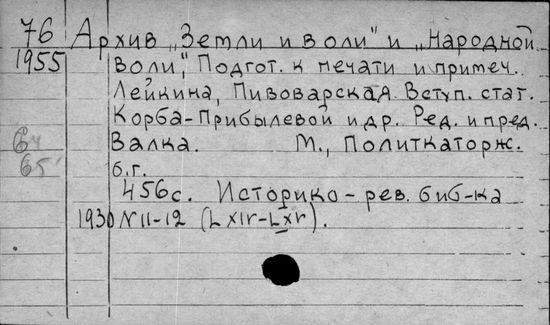 76 Архив „Земли и воли" и „Народной
1955 воли", Подгот. к печати и примеч.
Лейкина, Пивоварская. Вступ. стат.
Корба-Прибылевой и др. Ред. и пред.
64 Валка. М., Политкаторж.
65 б.г.
456 с. Историко-рев. биб-ка
1930 N 11-12 (LXIV-LXV).